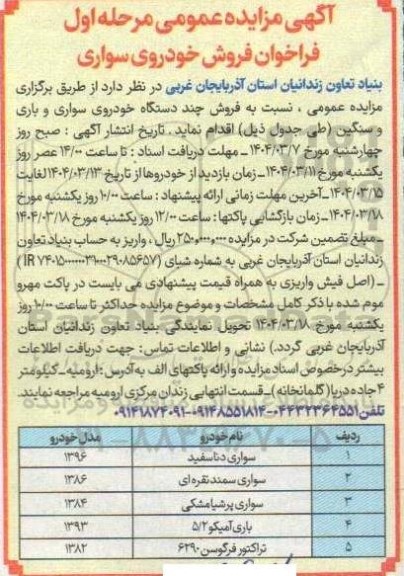 آگهی مزایده عمومی مرحله اول
فراخوان فروش خودروی سواری
بنیاد تعاون زندانیان استان آذربایجان غربی در نظر دارد از طریق برگزاری
مزایده عمومی ، نسبت به فروش چند دستگاه خودروی سواری و باری
و سنگین (طی جدول ذیل) اقدام نماید . تاریخ انتشار آگهی : صبح روز
چهارشنبه مورخ ۱۴۰۴/۰۳/۷ ـ مهلت دریافت اسناد : تا ساعت ۱۴/۰۰ عصر روز
یکشنبه مورخ ۱۴۰۴/۰۳/۱۱ ـ زمان بازدید از خودروها از تاریخ ۱۴۰۴/۰۳/۱۳ لغایت
۱۴۰۴/۰۳/۱۵ ـ آخرین مهلت زمانی ارائه پیشنهاد : ساعت ۱۰/۰۰ روز یکشنبه مورخ
۱۴۰۴/۰۳/۱۸ ـ زمان بازگشایی پاکتها : ساعت ۱۲/۰۰ روز یکشنبه مورخ ۱۴۰۴/۰۳/۱۸
ـ مبلغ تضمین شرکت در مزایده ۲۵۰،۰۰۰،۰۰۰ ریال ، واریز به حساب بنیاد تعاون
زندانیان استان آذربایجان غربی به شماره شبای
ـ (اصل فیش واریزی به همراه قیمت پیشنهادی می بایست در پاکت مهر و
موم شده با ذکر کامل مشخصات و موضوع مزایده حداکثر تا ساعت ۱۰/۰۰ روز
یکشنبه مورخ ۱۴۰۴/۰۳/۱۸ تحویل نمایندگی بنیاد تعاون زندانیان استان
آذربایجان غربی گردد.) نشانی و اطلاعات تماس: جهت دریافت اطلاعات
بیشتر در خصوص اسناد مزایده و ارائه پاکتهای الف به آدرس : ارومیه ـ کیلومتر
۴ جاده دریا ( گلمانخانه ) ـ قسمت انتهایی زندان مرکزی ارومیه مراجعه نمایند.
تلفن ۰۴۴۳۲۳۶۴۵۵۱-۰۹۱۴۸۵۵۱۸۱۴-۰۹۱۴۱۸۷۴۰۹۱
ردیف نام خودرو مدل خودرو
۱ سواری دنا سفید ۱۳۹۶
۲ سواری سمند نقره ای ۱۳۸۶
۳ سواری پرشیا مشکی ۱۳۸۴
۴ باری آمیکو ۵/۲ ۱۳۹۳
۵ تراکتور فرگوسن ۶۲۹۰ ۱۳۸۲